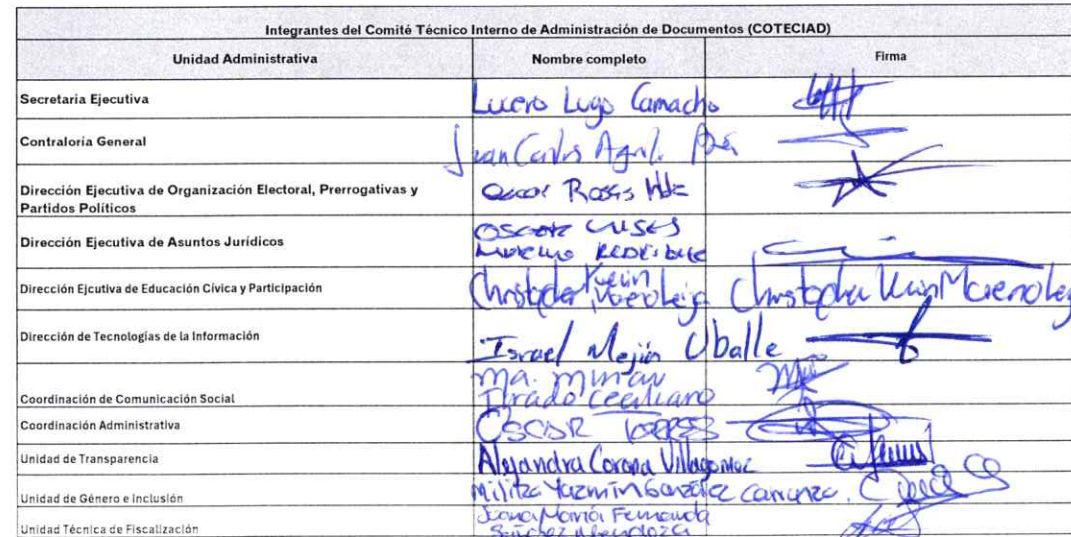 Integrantes del Comité Técnico Interno de Administración de Documentos (COTECIAD)
Unidad Administrativa Nombre completo Firma
Secretaria Ejecutiva Lucero Lugo Camacho
Contraloría General Juan Carlos
Dirección Ejecutiva de Organización Electoral, Prerrogativas y
Partidos Políticos Oscar Rosas
Dirección Ejecutiva de Asuntos Jurídicos OSCAR ULISES
MORENO
Dirección Ejcutiva de Educación Cívica y Participación Christopher Kevin Moreno Leija Christopher Kevin Moreno Leija
Dirección de Tecnologías de la Información Israel Mejía Uballe
Coordinación de Comunicación Social Ma.
Tirado
Coordinación Administrativa OSCAR TORRES
Unidad de Transparencia Alejandra Corona Villagomez
Unidad de Género e Inclusión Militza Yazmin González Carranza.
Unidad Técnica de Fiscalización Juana María Fernanda
Sánchez Mendoza